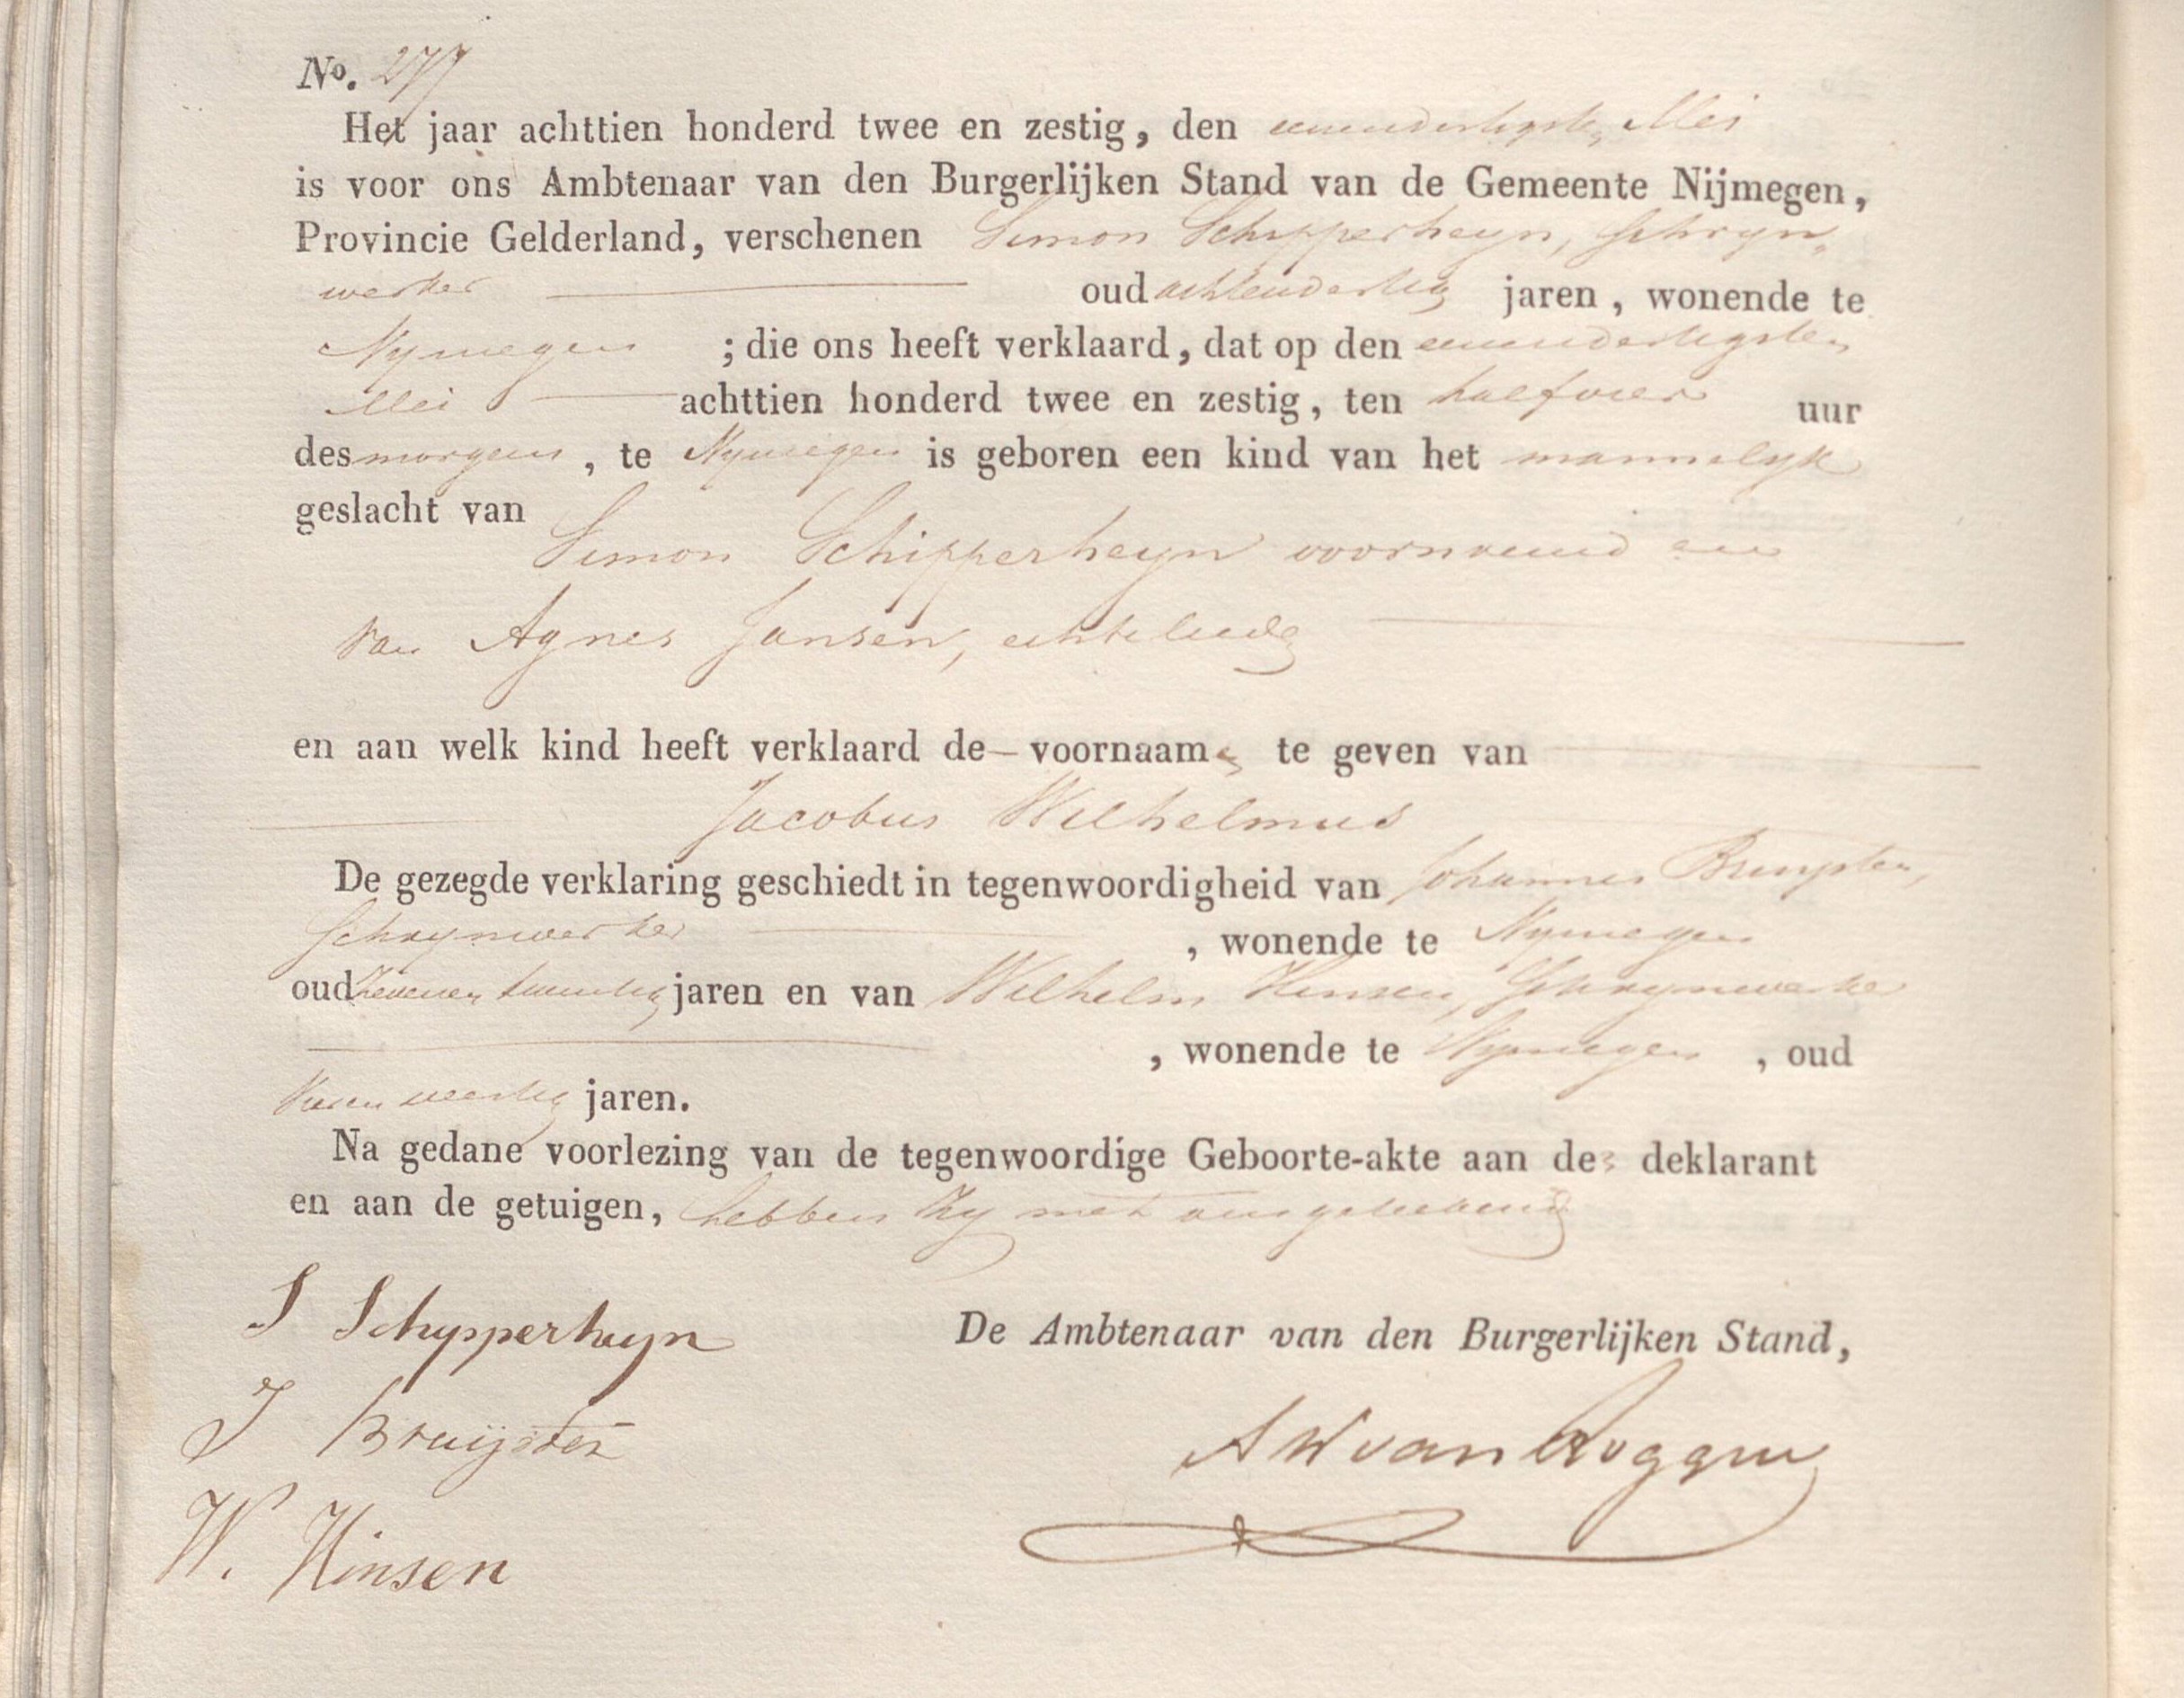 No. 277
Het jaar achttien honderd twee en zestig, den eenendertigsten Mei
is voor ons Ambtenaar van den Burgerlijken Stand van de Gemeente Nijmegen,
Provincie Gelderland, verschenen Simon Schipperheyn, schryn-
werker oud achtendertig jaren, wonende te
Nymegen ; die ons heeft verklaard, dat op den eenendertigsten
Mei achttien honderd twee en zestig, ten half vier uur
des morgens, te Nymegen is geboren een kind van het mannelyk
geslacht van
Simon Schipperheyn voornoemd en
van Agnes Jansen, echtelieden
en aan welk kind heeft verklaard de voornaamen te geven van
Jacobus Wilhelmus
De gezegde verklaring geschiedt in tegenwoordigheid van Johannes Bruysten,
Schrynwerker , wonende te Nymegen
oud zevenentwintig jaren en van Wilhelm Hinsen, Schrynwerker
, wonende te Nymegen , oud
veertig jaren.
Na gedane voorlezing van de tegenwoordige Geboorte-akte aan den deklarant
en aan de getuigen, hebben zy met ons geteekend
S Schypperheyn
De Ambtenaar van den Burgerlijken Stand,
J Bruijsten
A W van Roggen
W. Hinsen